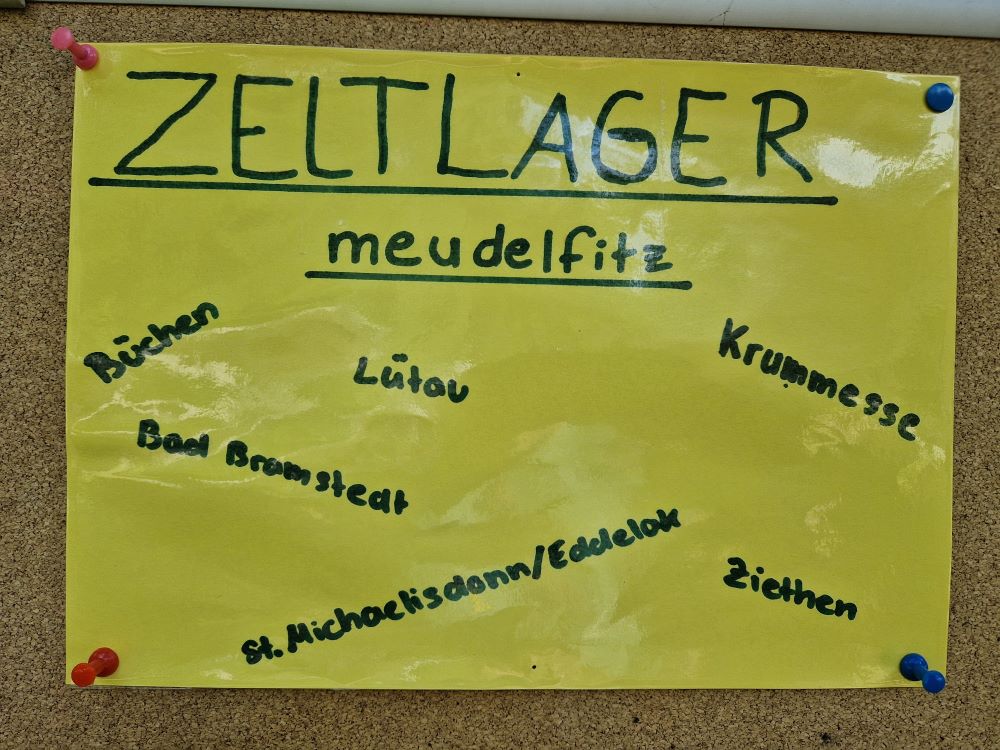 ZELTLAGER
meudelfitz
Büchen
Lütau
Krummesse
Bad Bramstedt
St. Michaelisdonn/Eddelak
Ziethen